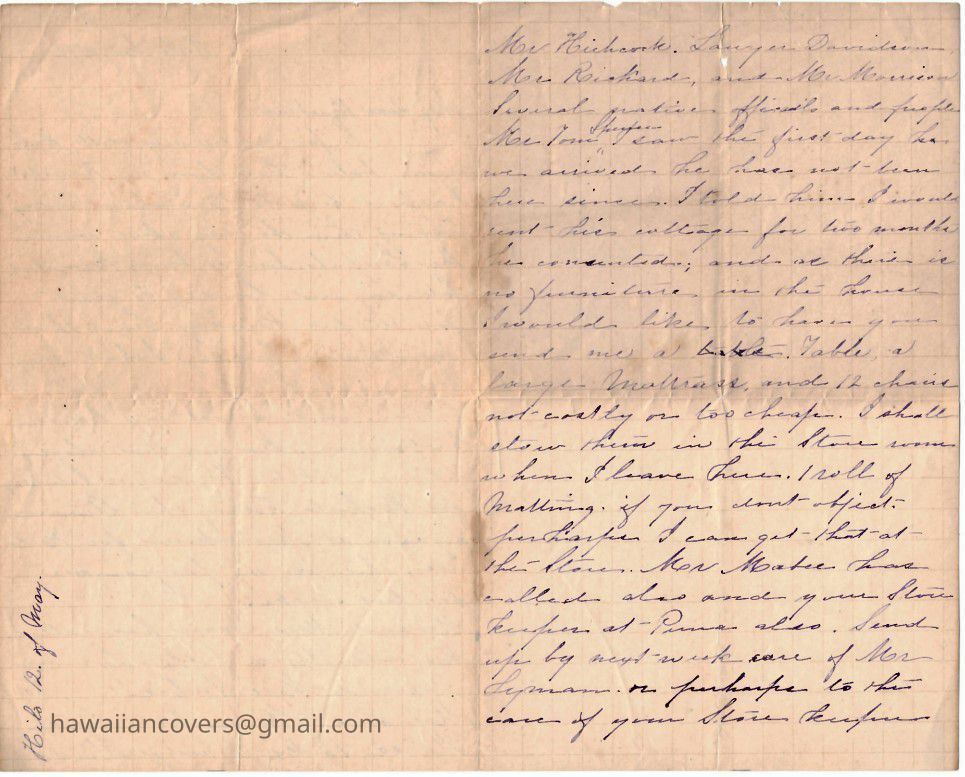 Mr Hichcock. Lawyer Davidson,
Mr Rickard, and Mr Morrison
Several native officals and people
Mr Tom Spencer I saw the first day
we arrived he has not been
here since. I told him I would
rent his cottage for two months
he consented; and as there is
no furniture in the house
I would like to have you
send me a Table, a
large Mattrass, and 12 chairs
not costly or too cheap. I shall
stow them in the Store room
when I leave here. 1 roll of
Matting. if you dont object.
perhaps I can get that at
the Store. Mr Mabee has
called also and your Store
keeper at Puna also. Send
up by next week care of Mr
Lyman. or perhaps to the
care of your Store keeper
Hilo 12. of May.
hawaiiancovers@gmail.com